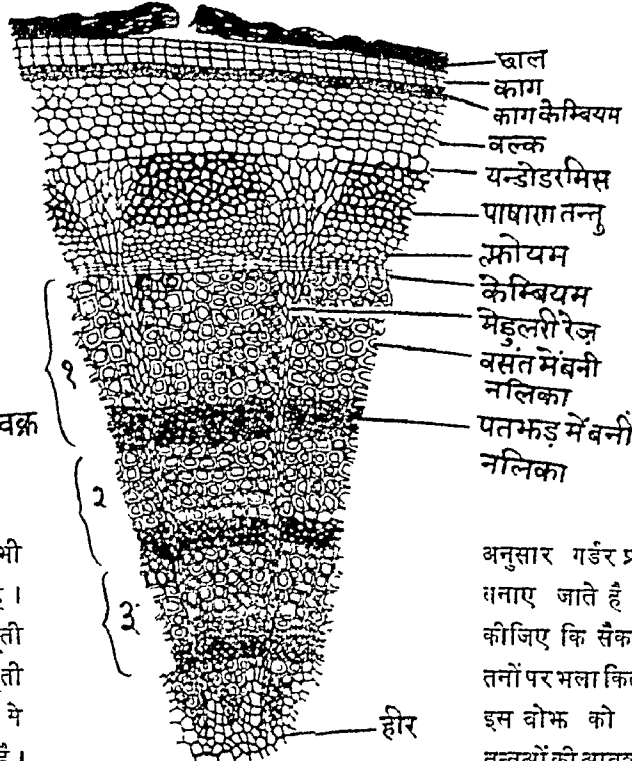 छाल
काग
काग केम्बियम
वल्क
यन्डोडरमिस
पाषाण तन्तु
फ्लोयम
केम्बियम
मेडुलरी रेज़
वसंत में बनी
नलिका
पतझड़ में बनी
नलिका
१
वक्र
२
३
हीर
भी
ती
ती
ये
है।
अनुसार गर्डर
बनाए जाते है
कीजिए कि सैक
तनों पर भला
इस बोझ को